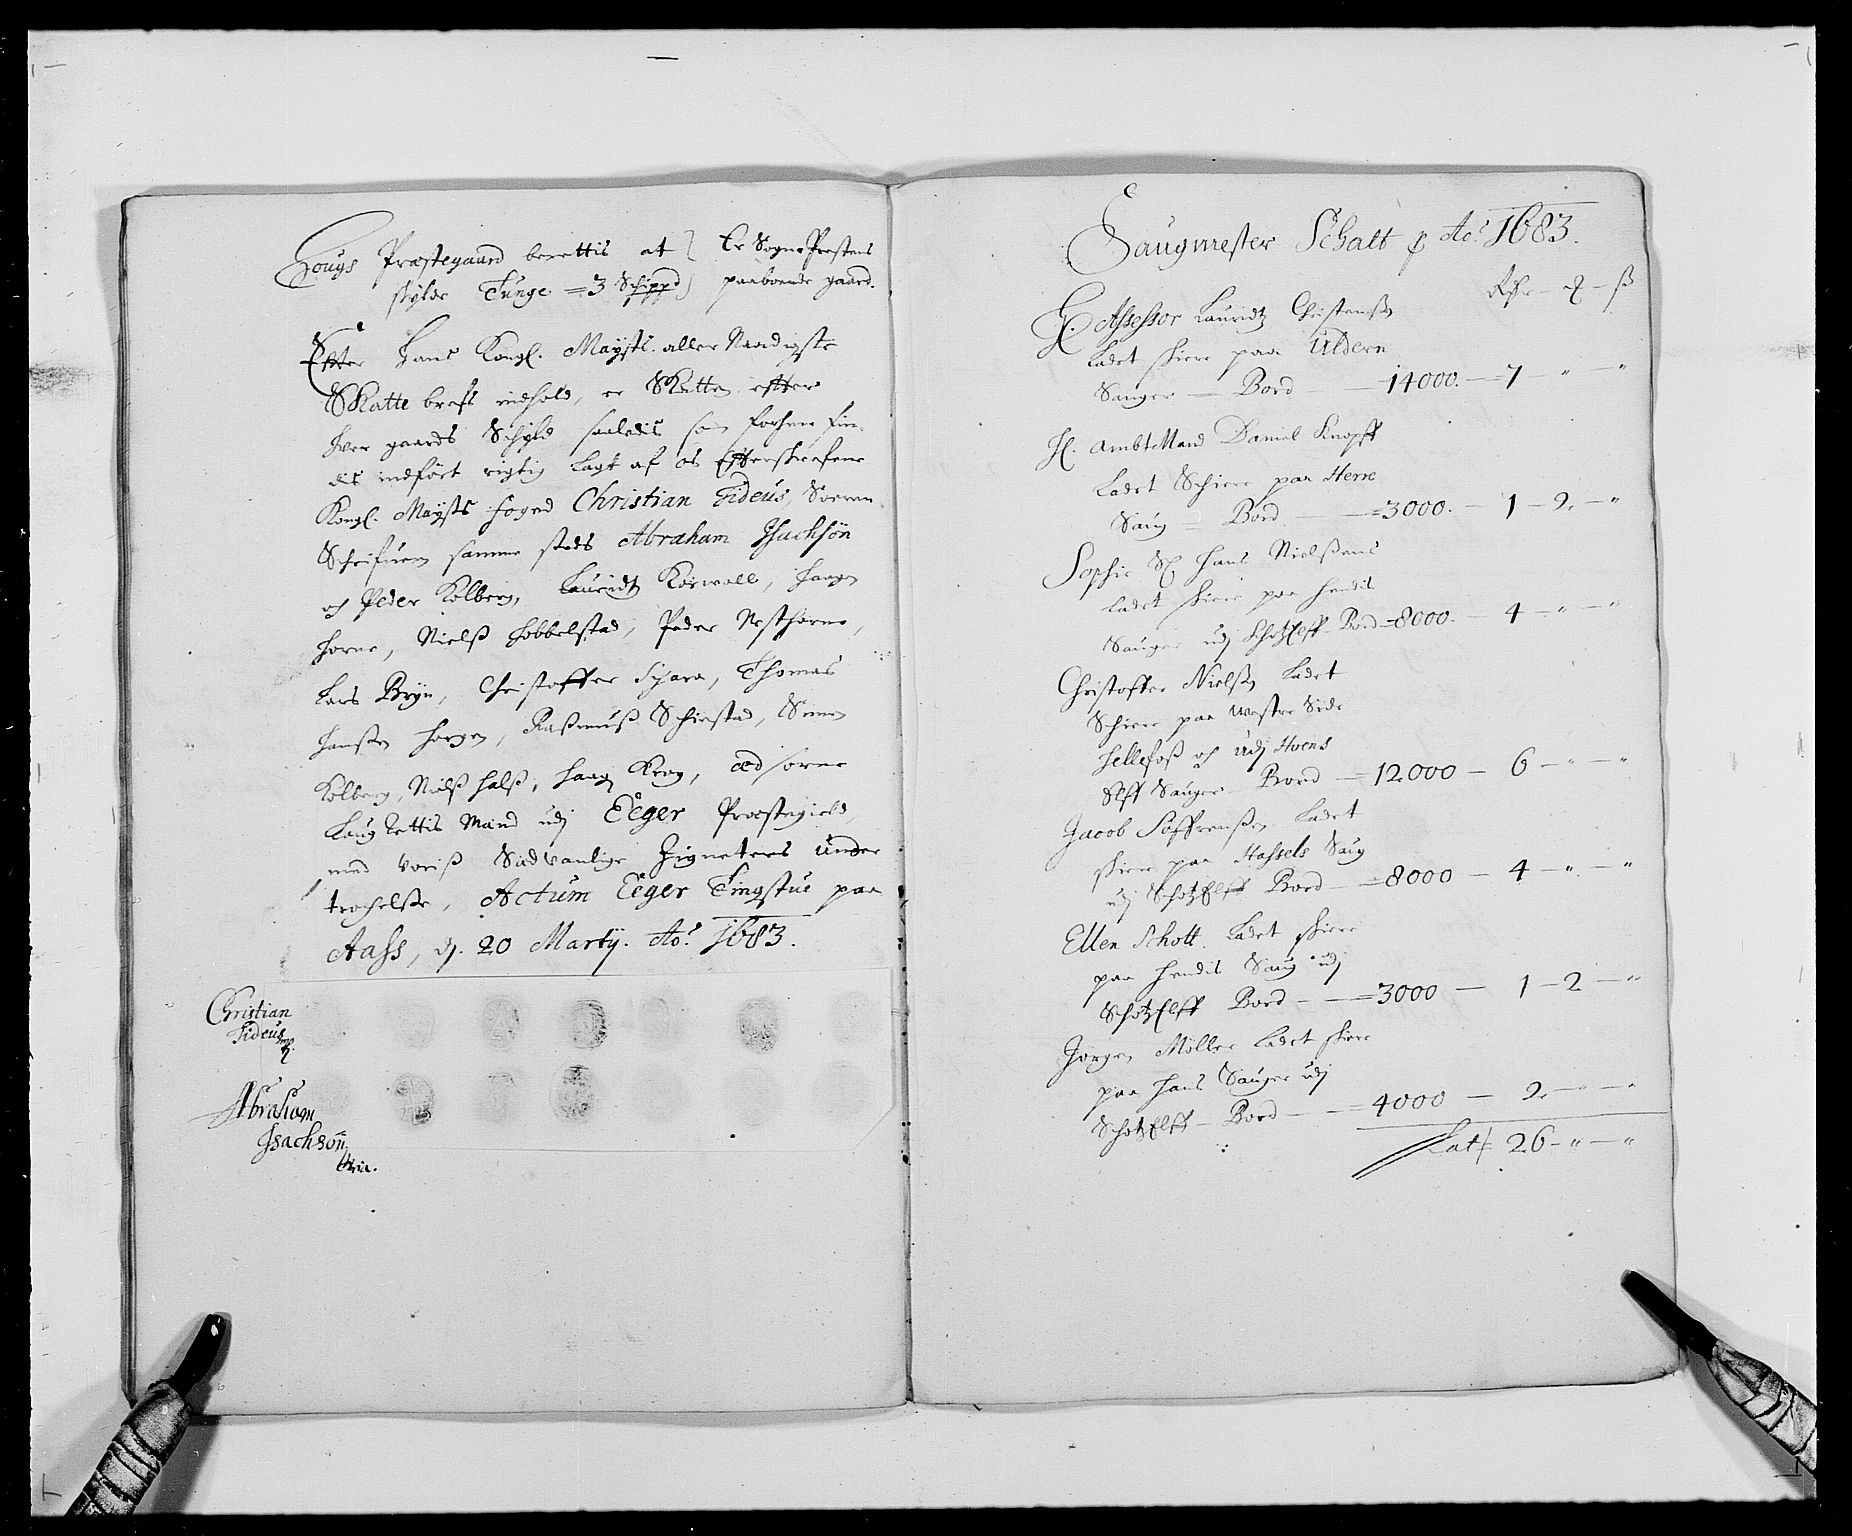 Hougs Præstegaard berettis at } Er Sogne Prestens
skylde Tunge = 3 Schippd } paaboende gaard.
Effter Hans Kongl. Maysts. aller Naadigste
Skatte brefs indhold, er Skatten efter
hver gaards Schyld saaledis som forhen fin-
dis indfört rigtig Lagt af os Efterskrefne
Kongl. Maysts foged Christian Tideüs, Soeren
Schrifueren samme steds Abraham Isachsön
och Peder Kolberg, Lauridt Korwall, Haagen
Horne, Nielß Hobbelstad, Peder Vesthorne,
Lars Bryn, Christoffer Schara, Thomas
Hanßen Horgen, Raßmuß Schiestad, Simen
Kolberg, Nielß Halß, Haagen Krog, æd sorne
Laug Rettis Mænd udj Eeger Præstegield
med voriß Sædvanlige Zigneters under
trychelße, Actum Eeger Tingstue paa
Aass, d. 20 Martij. Ao. 1683.
Christian
Tideüs
mp.
Abraham
Isachsön
Saugmester Schatt p Ao. 1683.
Rdr - # - ß
H. Assessor Lauridtz Christenßen
Ladet skiere paa Uldern
Sauger — Bord — 14000. — 7 - " - "
H. AmbtMand Daniel Knopff
Ladet Schiere paa Herre
Saug — Bord — =3000. — 1 - 2. - "
Sophie Sl. Hans Nielßens
Ladet skiere paa hendis
Sauger udj SchotzElff Bord =8000. — 4 - " - "
Christoffer Nielßen Ladet
Schiere paa Westre Side
Hellefoß och udj Hoens
Elff Sauger Bord — 12000 — 6 - " - "
Jacob Söffrenßen Ladet
skiere paa Hassels Saug
udj SchotzElff Bord — =8000 — 4 - " - "
Ellen Schott Ladet skiere
paa hendis Saug udj
SchotzElff Bord — =3000 — 1 - 2 - "
Jörgen Möller Ladet skiere
paa hans Sauger udj
SchotzElff — Bord — = 4000 — 2. - " - "
Lat 26 - " - "